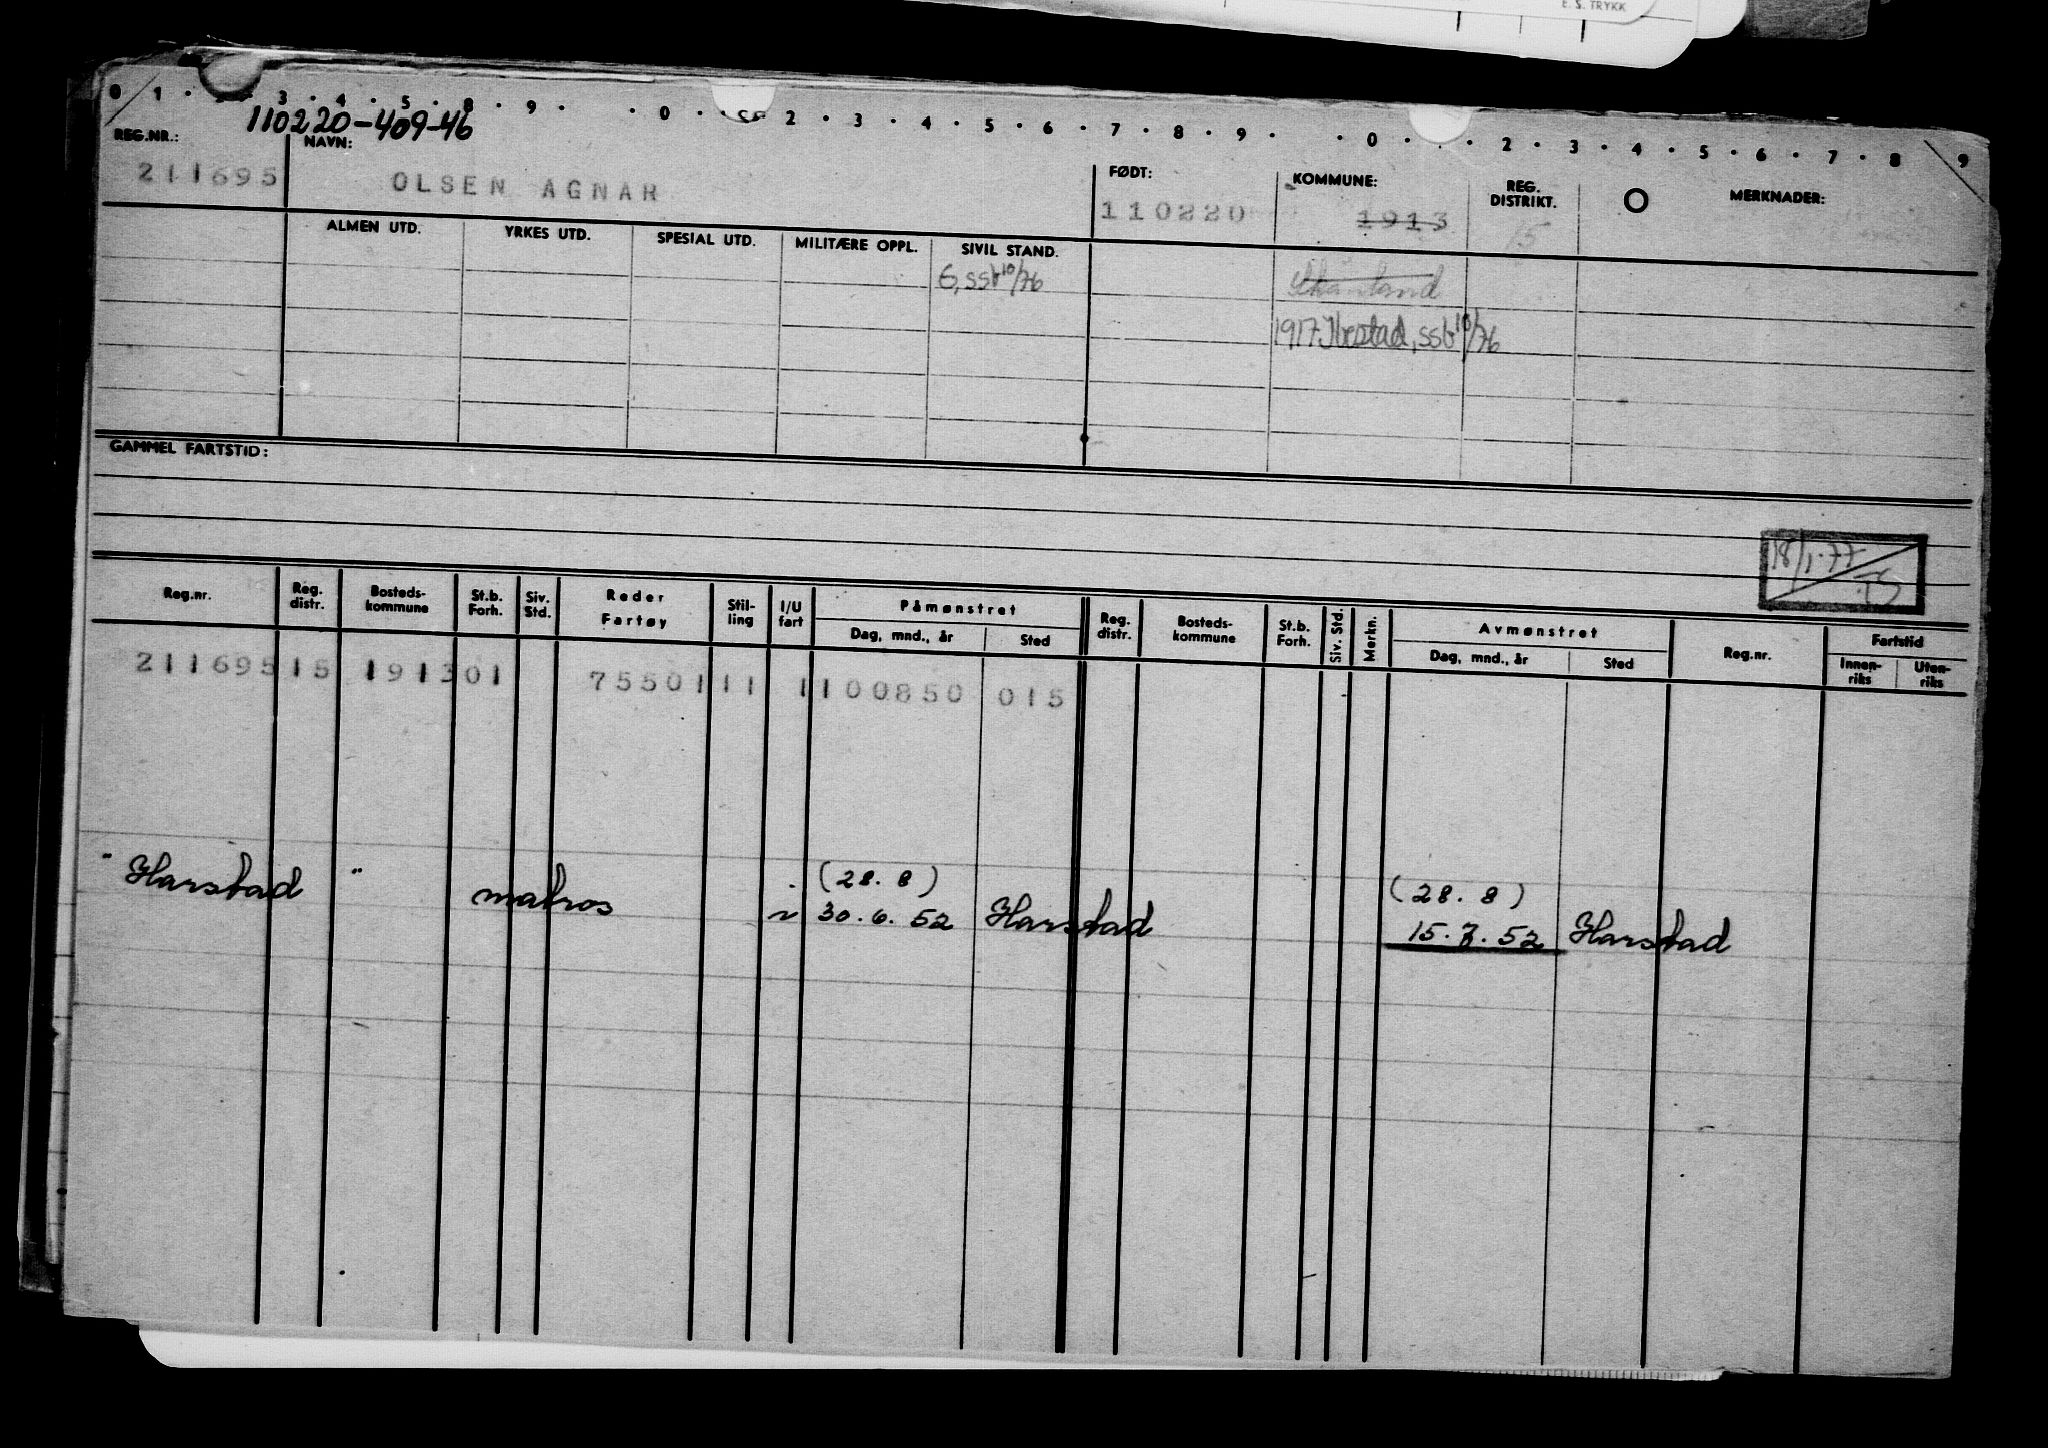 E. S. TRYKK
0 1 · 3 · 4 · 5 · 8 · 9 · · 0 · · 2 · 3 · 4 · 5 · 6 · 7 · 8 · 9 · · 0 · · 2 · 3 · 4 · 5 · 6 · 7 · 8 9
110220-409-46
REG.NR.: NAVN: FØDT: KOMMUNE: REG. DISTRIKT. O MERKNADER:
211695 OLSEN AGNAR 110220 1913 15
ALMEN UTD. YRKES UTD. SPESIAL UTD. MILITÆRE OPPL. SIVIL STAND.
G, ssb 10/76 Skånland
1917 Ibestad, ssb 10/76
GAMMEL FARTSTID:
18/1-77
Reg.nr. Reg. distr. Bosteds-kommune St.b. Forh. Siv. Std. Reder Fartøy Stil-ling I/U fart Påmønstret Reg. distr. Bosteds-kommune St.b. Forh. Siv. Std. Merkn. Avmønstret Reg.nr. Fartstid
Dag, mnd., år Sted Dag, mnd., år Sted Innen-riks Uten-riks
211695 15 1913 01 7550 111 1 100850 015
" Harstad " matros (28. 8) (28. 8)
30. 6. 52 Harstad 15. 7. 52 Harstad